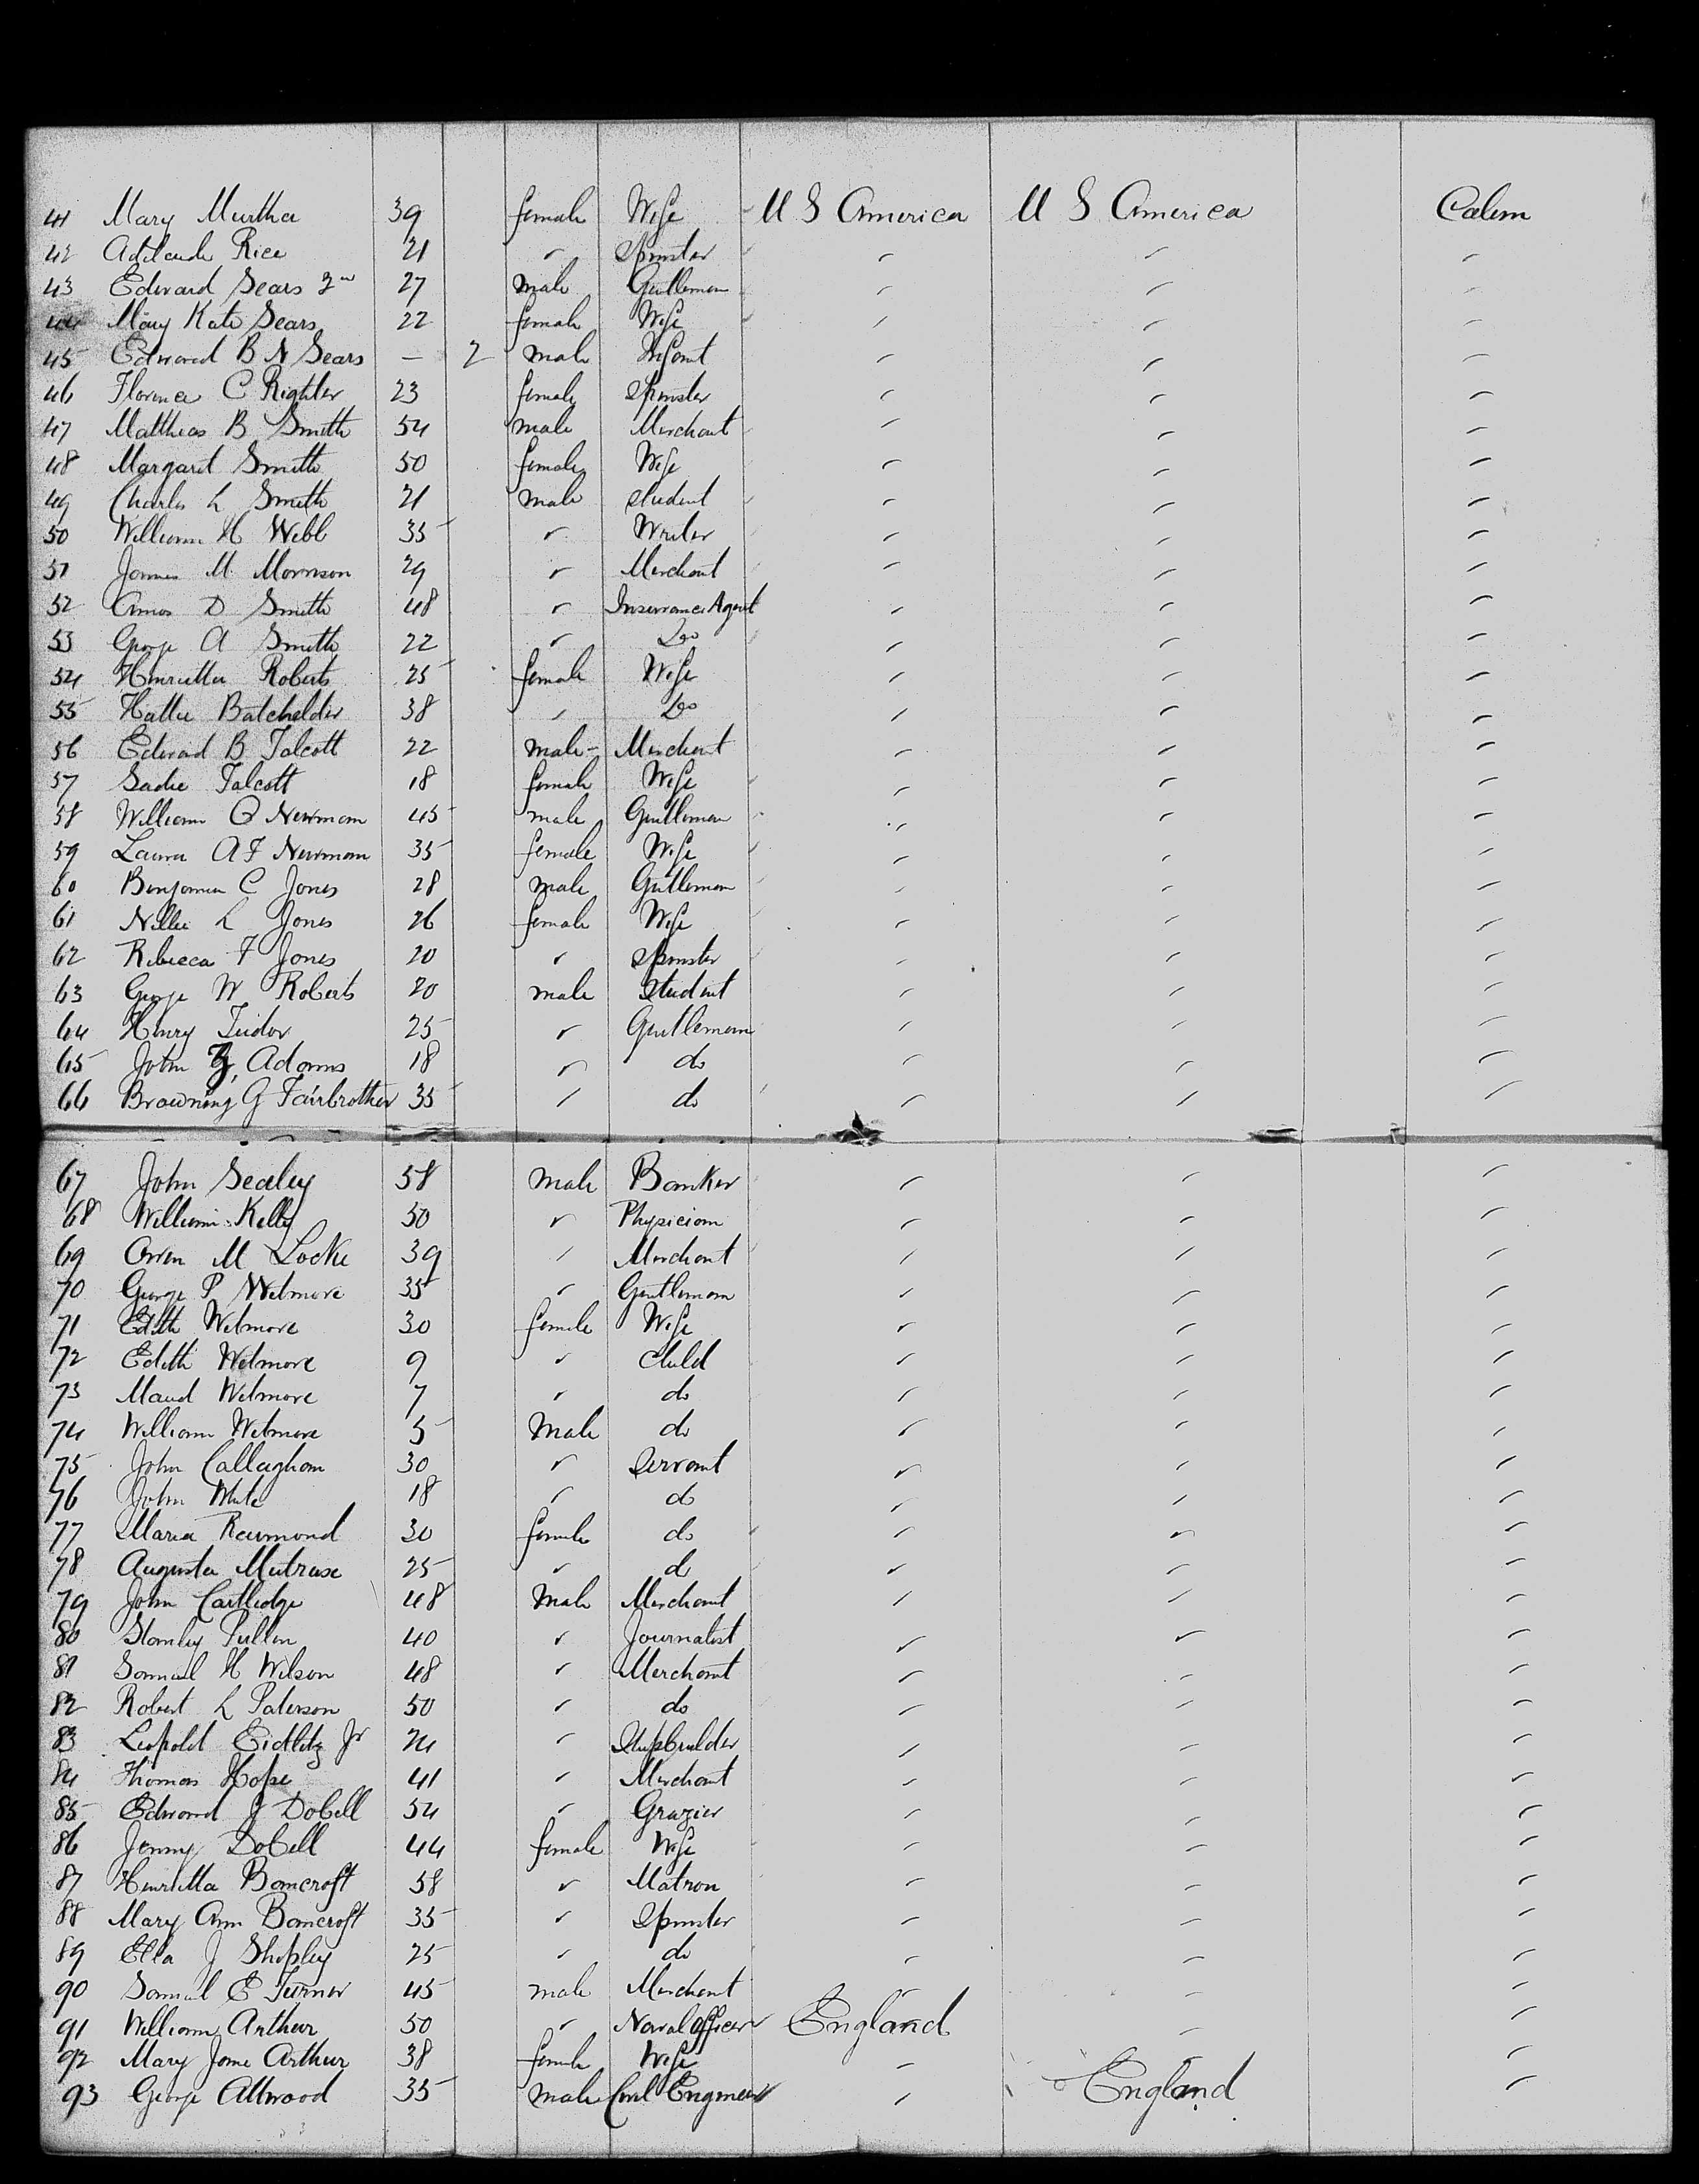 41 Mary Murtha 39 female Wife U S America U S America Cabin
42 Adelaide Rice 21 " Spinster " " "
43 Edward Sears 27 male Gentleman " " "
44 Mary Kate Sears 22 female Wife " " "
45 Edward B N Sears — 2 male Infant " " "
46 Florence C Rightler 23 female Spinster " " "
47 Matthias B Smith 54 male Merchant " " "
48 Margaret Smith 50 female Wife " " "
49 Charles L Smith 21 male Student " " "
50 William H Webb 35 " Writer " " "
51 James M Morrison 29 " Merchant " " "
52 Amos D Smith 48 " Insurance Agent " " "
53 George A Smith 22 " Do " " "
54 Henrietta Roberts 25 female Wife " " "
55 Hattie Batchelder 38 " Do " " "
56 Edward B Talcott 22 male Merchant " " "
57 Sadie Talcott 18 female Wife " " "
58 William C Newman 45 male Gentleman " " "
59 Laura A F Newman 35 female Wife " " "
60 Benjamin C Jones 28 male Gentleman " " "
61 Nellie L Jones 26 female Wife " " "
62 Rebecca F Jones 20 " Spinster " " "
63 George W Roberts 20 male Student " " "
64 Henry Tudor 25 " Gentleman " " "
65 John Adams 18 " do " " "
66 Browning G Fairbrother 35 " do " " "
67 John Sealey 58 male Banker " " "
68 William Kelly 50 " Physician " " "
69 Orren M Locke 39 " Merchant " " "
70 George P Wetmore 35 " Gentleman " " "
71 Edith Wetmore 30 female Wife " " "
72 Edith Wetmore 9 " Child " " "
73 Maud Wetmore 7 " do " " "
74 William Wetmore 5 Male do " " "
75 John Callaghan 30 " Servant " " "
76 John White 18 " do " " "
77 Maria Raymond 30 female do " " "
78 Augusta 25 " do " " "
79 John Cartledge 48 Male Merchant " " "
80 Stanley Pullen 40 " Journalist " " "
81 Samuel H Wilson 48 " Merchant " " "
82 Robert L Paterson 50 " do " " "
83 Leopold Eidlitz Jr 24 " Shipbuilder " " "
84 Thomas Hope 41 " Merchant " " "
85 Edward J Dobell 54 " Grazier " " "
86 Jenny Dobell 44 female Wife " " "
87 Henrietta Bancroft 58 " Matron " " "
88 Mary Ann Bancroft 35 " Spinster " " "
89 Ella J Shipley 25 " do " " "
90 Samuel E Turner 45 male Merchant " " "
91 William Arthur 50 " Naval officer England " "
92 Mary Jane Arthur 38 female Wife " " "
93 George Attwood 35 male Civil Engineer " England "